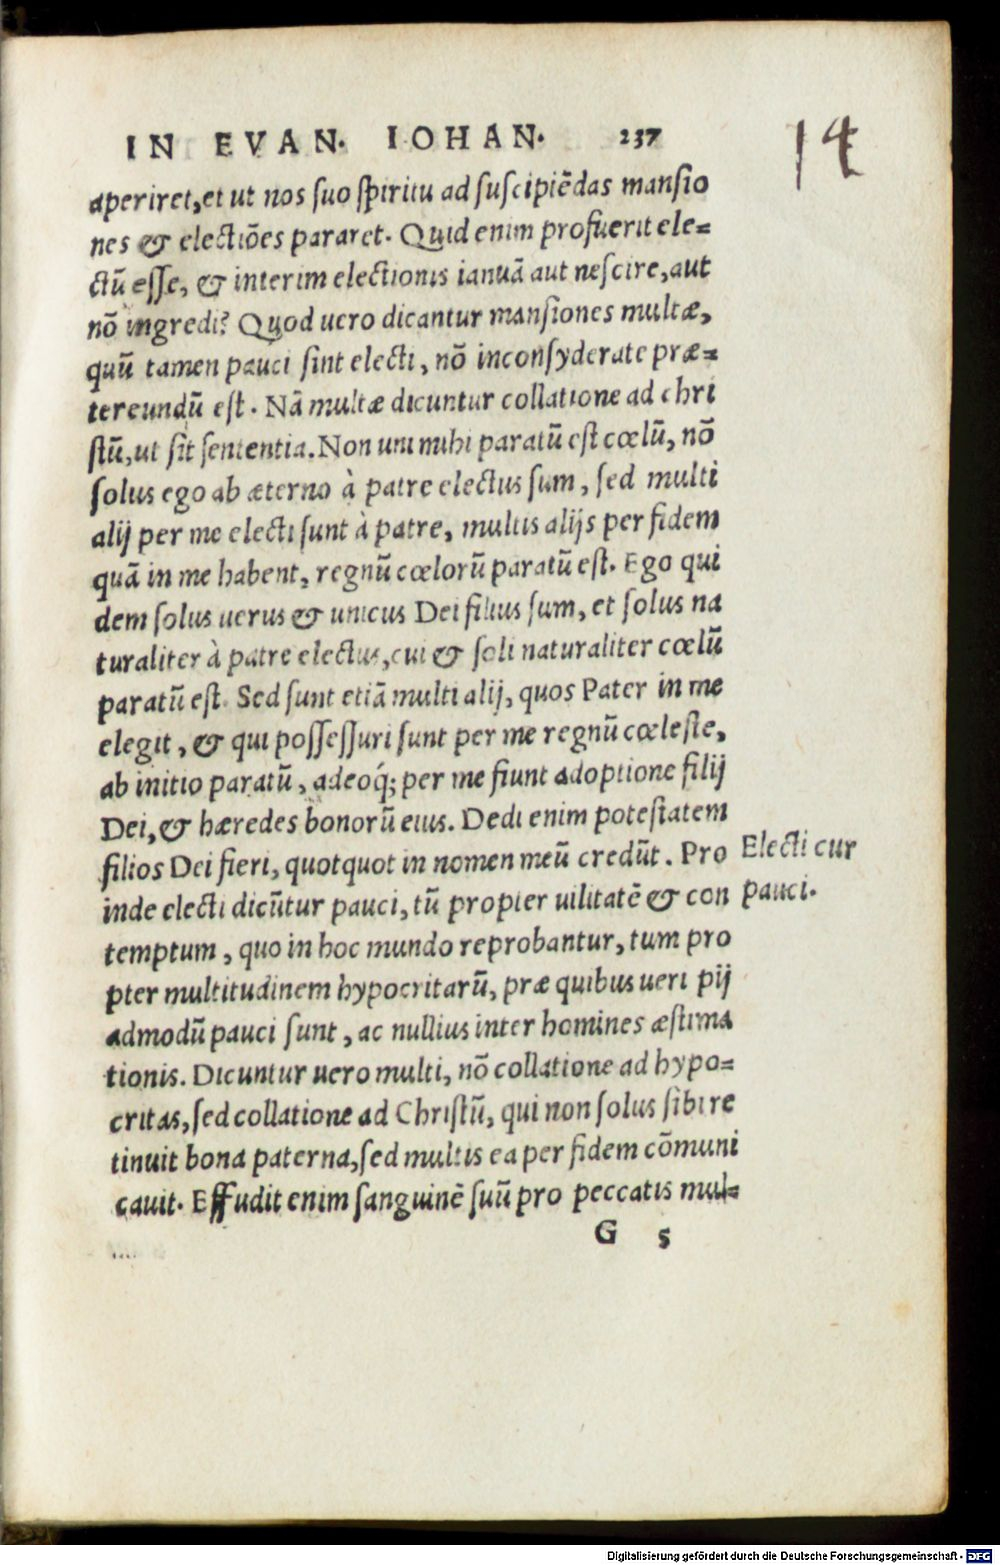 IN EVAN. IOHAN. 237
14
aperiret, et ut nos suo spiritu ad suscipiēdas mansio
nes & electiōes pararet. Quid enim profuerit ele=
ctū esse, & interim electionis ianuā aut nescire, aut
nō ingredi? Quod uero dicantur mansiones multæ,
quū tamen pauci sint electi, nō inconsyderate præ=
tereundū est. Nā multæ dicuntur collatione ad chri
stū, ut sit sententia. Non uni mihi paratū est cœlū, nō
solus ego ab æterno à patre electus sum, sed multi
alij per me electi sunt à patre, multis alijs per fidem
quā in me habent, regnū cœlorū paratū est. Ego qui
dem solus uerus & unicus Dei filius sum, et solus na
turaliter à patre electus, cui & soli naturaliter cœlū
paratū est. Sed sunt etiā multi alij, quos Pater in me
elegit, & qui possessuri sunt per me regnū cœleste,
ab initio paratū, adeoq́; per me fiunt adoptione filij
Dei, & hæredes bonorū eius. Dedi enim potestatem
filios Dei fieri, quotquot in nomen meū credūt. Pro
inde electi dicūtur pauci, tū propter uilitatē & con
temptum, quo in hoc mundo reprobantur, tum pro
pter multitudinem hypocritarū, præ quibus ueri pij
admodū pauci sunt, ac nullius inter homines æstima
tionis. Dicuntur uero multi, nō collatione ad hypo=
critas, sed collatione ad Christū, qui non solus sibi re
tinuit bona paterna, sed multis ea per fidem cōmuni
cauit. Effudit enim sanguinē suū pro peccatis mul=
G 5
Electi cur
pauci.
Digitalisierung gefördert durch die Deutsche Forschungsgemeinschaft - DFG